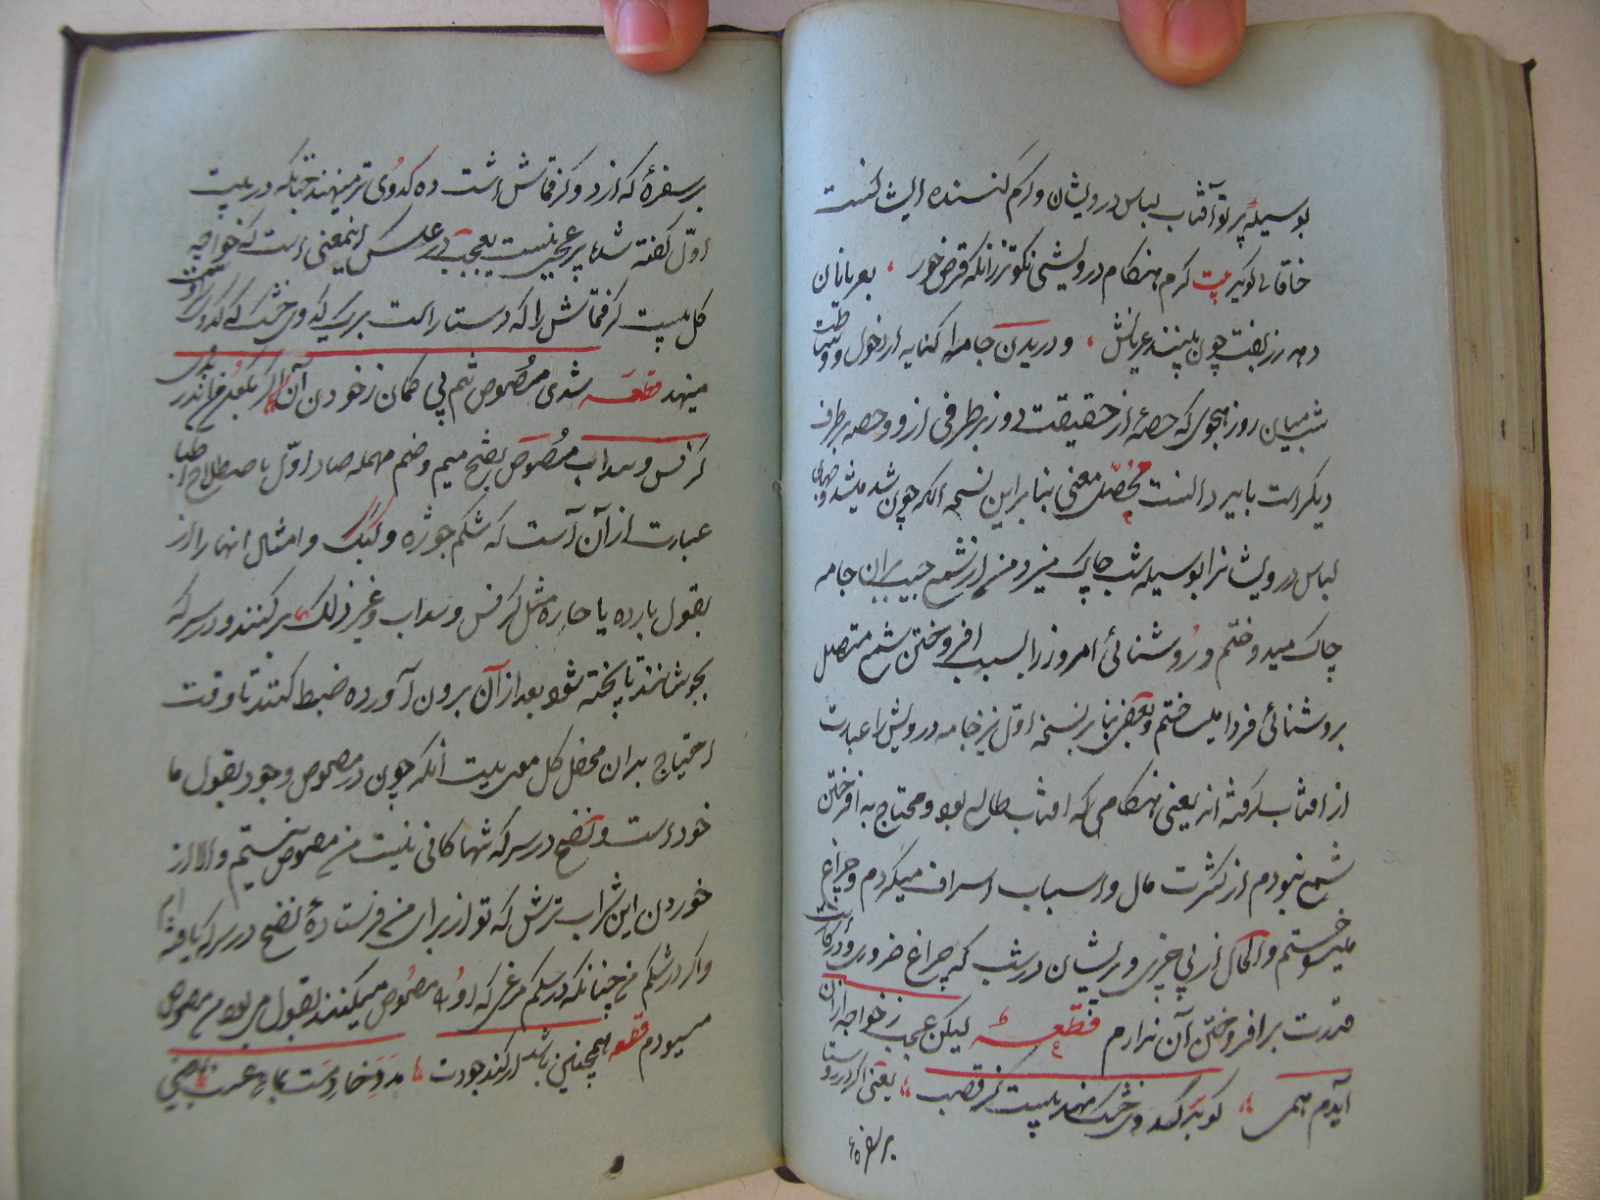 بوسیله پرتو آفتاب لباس درویشان و اکم کننده الیشانست
خاقانی گوید بیت کرم هنکام درویشی نکوتر زانکه قرص خور ، بعریانان
دهد زربفت چون بینند عریانش ، و دریدن جامه کنایه از دخول و وساطت
شب میان روز بنحوی که حصهٔ از حقیقت دوز برطرفی از و و حصه برطرف
دیکر است باید دانست محصّل معنی بنابراین نسخه انکه چون شب میشد
لباس درویشانرا بوسیله شب چاک میزدم من از شمع جیب ان جامه
چاک میدوختم و روشنائی امروز را بسبب افروختن شمع متصل
بروشنائی فردا میساختم و بعضی بنابر نسخه اول نیز جامه درویش را عبارت
از افتاب کرفته اند یعنی هنکامی که افتاب طالع بود و محتاج به افروختن
شمع نبودم از کثرت مال و اسباب اسراف میکردم و چراغ
میسوختم و الحال از بی چیزی و پریشان در شب که چراغ ضروری و در کار است
قدرت بر افروختن آن ندارم قطعه لیکن عجب ز خواجه ازان
آیدم همی ، کو بر کدوی خشک نهد بیست کز قصب ، یعنی اگر در
بر سفره
بر سفرهٔ که از زد و کز قماش است ده کدوی تر مینهند چنانکه در بیت
اوّل کفته شد پر عجبی نیست تعجب در عکس اینمعنی است که خواجه
کل بیست کز قماش را که دستار است بر یک کدوی خشک که کدوی سر است
مینهد قطعه شدی مصوص شم پی کمان ز خوردن آن اکر بقول فکندی اندر
کرفس و سداب مصوص بفتح میم و ضم مهمله صاد اوّل باصطلاح اطبا
عبارت از آن است که شکم جوژه و کبک و امثال انها را از
بقول بارده یا حاره مثل کرفس و سداب و غیر ذلک پر کنند و در سرکه
بجوشانند تا پخته شود بعد از آن برون آورده ضبط کنند تا وقت
احتیاج بدان محصل کل معنی بیت انکه چون در مصوص وجود بقول ما
خود است و نضج در سرکه تنها کافی نیست من مصوص نیستم و الا از
خوردن این شراب ترش که تو از برای من فرستادهٔ نضج در سرکه یافته ام
و اکر در شکم من چنانکه در شکم مرغی که او را مصوص میکنند بقول می بود من مصوص
میبودم قطعه همچنین باشد ار کند جودت ،